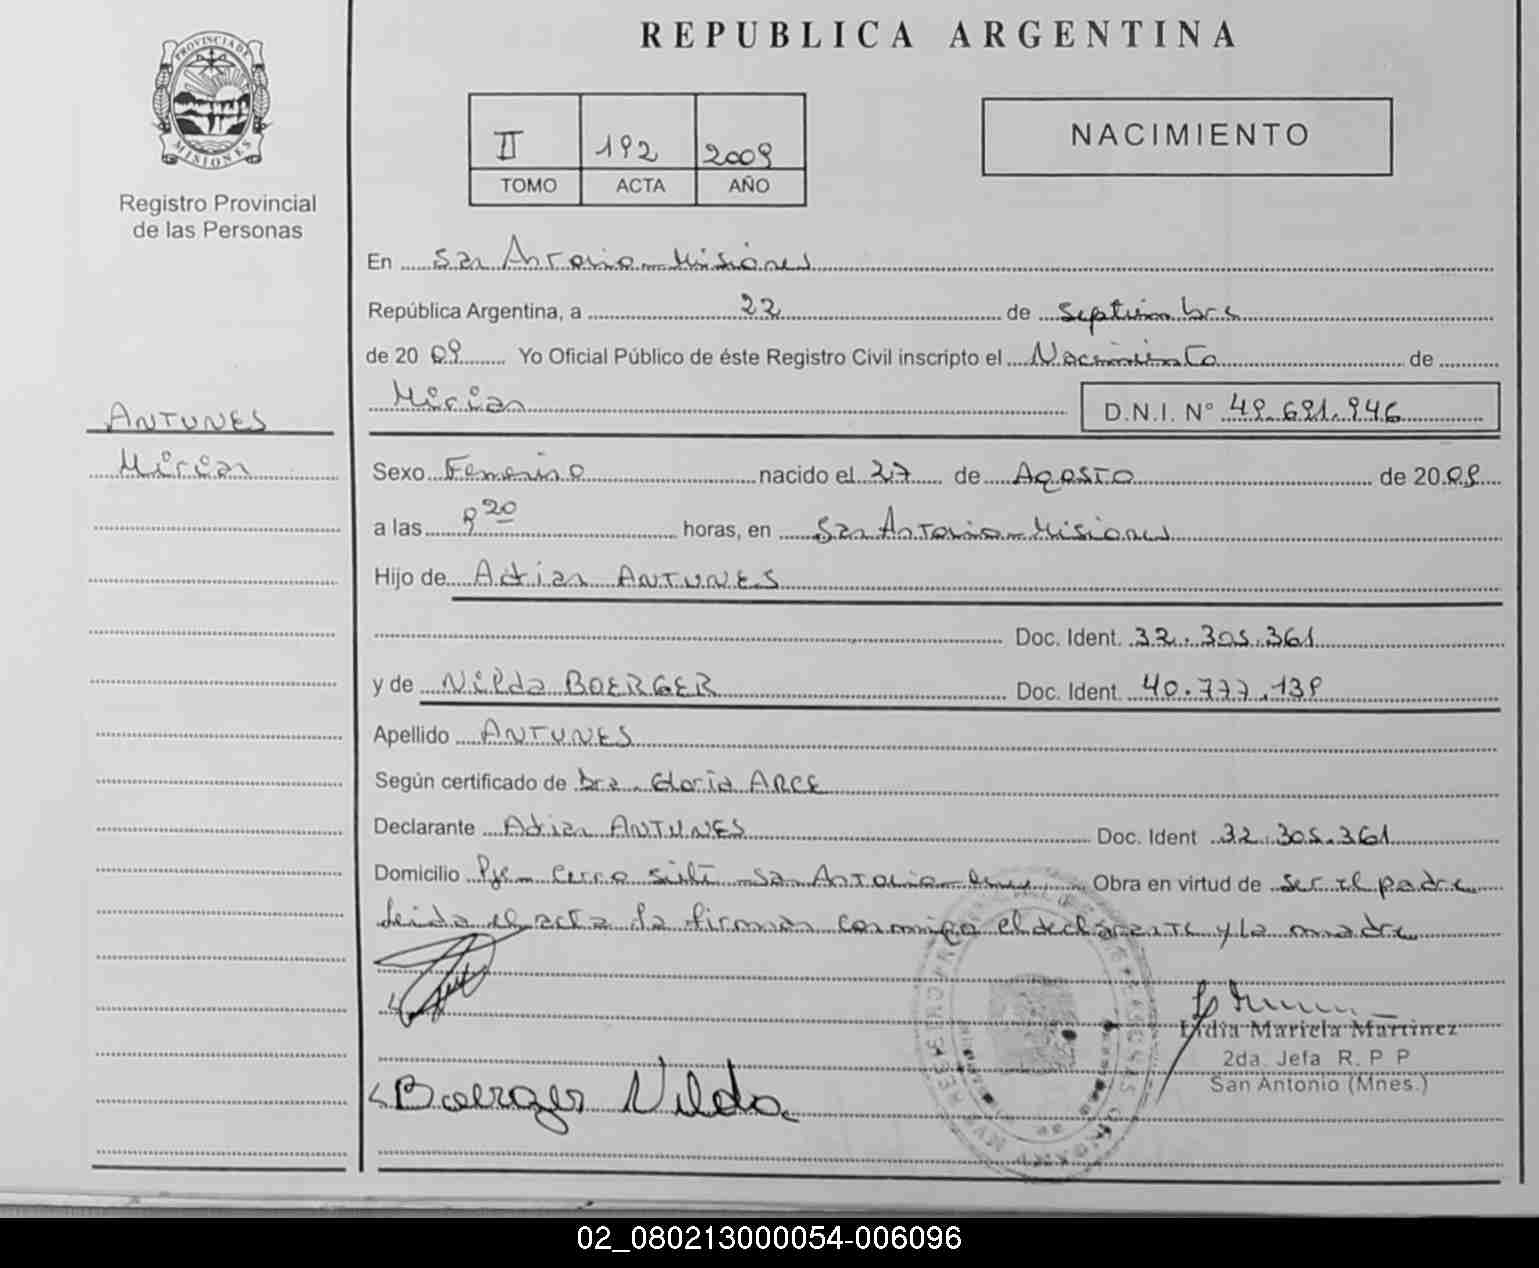 REPUBLICA ARGENTINA
PROVINCIA DE
MISIONES
Registro Provincial
de las Personas
II 192 2009
TOMO ACTA AÑO
NACIMIENTO
En San Antonio - Misiones
República Argentina, a 22 de Septiembre
de 20 09 Yo Oficial Público de éste Registro Civil inscripto el Nacimiento de
Mirian D.N.I. N° 49.691.946
ANTUNES
Mirian
Sexo Femenino nacido el 27 de Agosto de 20 09
a las 9 20 horas, en San Antonio - Misiones
Hijo de Adrian ANTUNES
Doc. Ident. 32.305.361
y de Nilda BOERGER Doc. Ident. 40.777.139
Apellido ANTUNES
Según certificado de Dra. Gloria ARCE
Declarante Adrian ANTUNES Doc. Ident 32.305.361
Domicilio Pje - Cerro siete - San Antonio - Obra en virtud de ser el padre
leida el acta la firman conmigo el declarante y la madre
Boerger Nilda
Lidia Mariela Martinez
2da. Jefa R. P P
San Antonio (Mnes.)
02_080213000054-006096